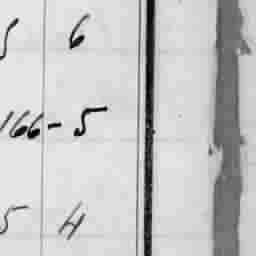 5 6
166-5
5 4